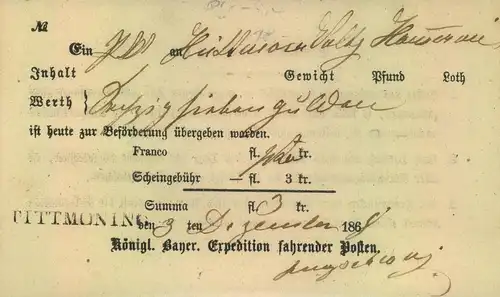 №
Ein an
Inhalt Gewicht Pfund Loth
Werth } sieben gulden
ist heute zur Beförderung übergeben worden.
Franco fl. kr.
Scheingebühr — fl. 3 kr.
Summa fl. 3 kr.
TITTMONING
den 3 ten Dezember 1868
Königl. Bayer. Expedition fahrender Posten.